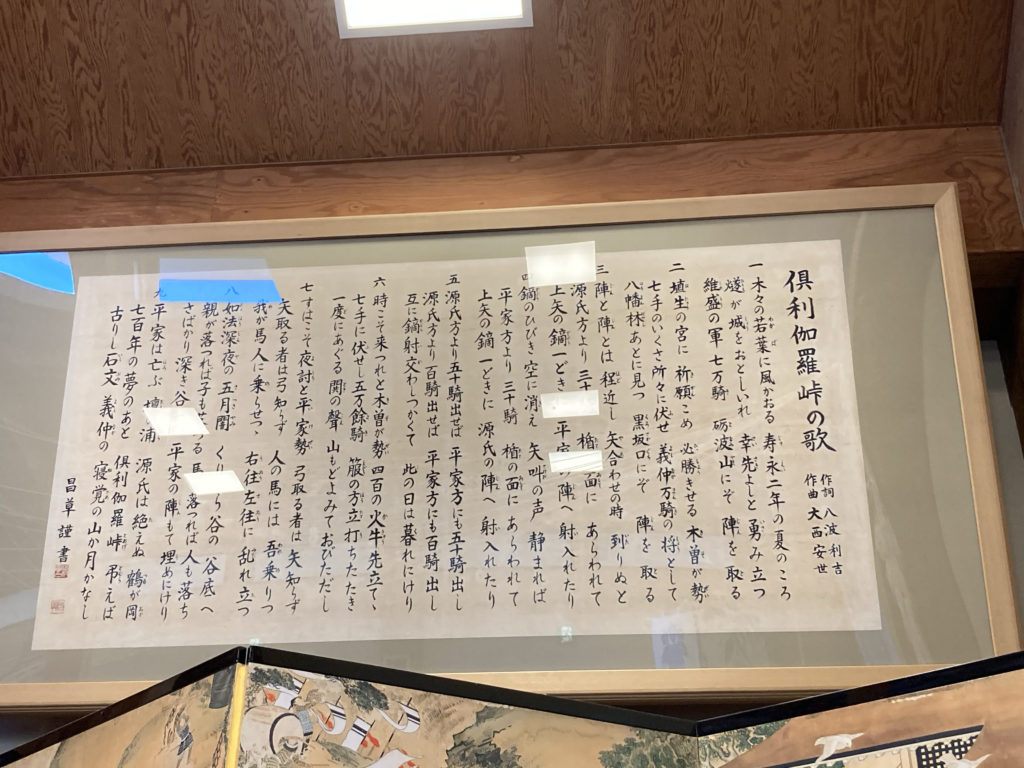 倶利伽羅峠の歌
作詞 八波利吉
作曲 大西安世
一 木々の若葉に風がおる 寿永二年の夏のころ
燧が城をおとしいれ 幸先よしと勇み立つ
維盛の軍 七万騎 砺波山にぞ 陣を取る
二 埴生の宮に 祈願こめ 必勝きせる 木曽が勢
七手のいくさ所々に伏せ 義仲万騎の将として
八幡林あとに見つ 黒坂口にぞ 陣を取る
三 陣と陣とは 程近し 矢合わせの時 到りぬと
源氏方より 三十 楯の面に あらわれて
上矢の鏑一どき 平家の陣へ 射入れたり
四 鏑のひびき空に消え 矢叫の声 静まれば
平家方より 三十騎 楯の面に あらわれて
上矢の鏑一どきに 源氏の陣へ 射入れたり
五 源氏方より五十騎出せば 平家方にも五十騎出し
源氏方より百騎出せば 平家方にも百騎出し
互に鏑射交わしつかくて 此の日は暮れにけり
六 時こそ来つれと木曽が勢 四百の火牛先立てゝ
七手に伏せし五万餘騎 箙の方立打ちたたき
一度にあぐる鬨の聲 山もとよみておびただし
七 すはこそ夜討と平家勢 弓取る者は 矢知らず
矢取る者は弓知らず 人の馬には 吾乗りつ
我が馬人に乗らせつゝ 右往左往に 乱れ立つ
八 如法深夜の 五月闇 くりから谷の 谷底へ
親が落つれば子も 落つる 馬落つれば人も落ち
さばかり深き谷 平家の陣もて 埋めにけり
九 平家は亡ぶ 壇 浦 源氏は絶えぬ 鶴が岡
七百年の夢のあと 倶利伽羅峠 弔えば
古りし石文 義仲の 寝覚の山か月かなし
昌草謹書